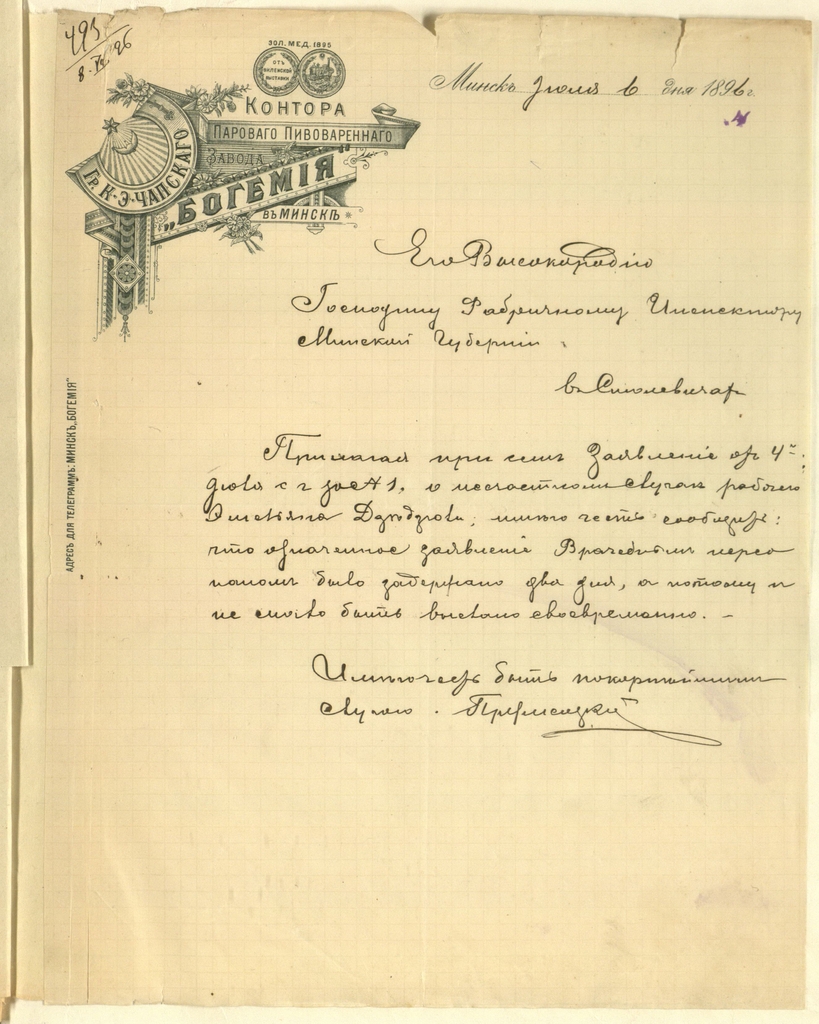 493
8. VII 96
ЗОЛ. МЕД. 1895
ОТЪ ВИЛЕНСКОЙ ВЫСТАВКИ
КОНТОРА
ПАРОВАГО ПИВОВАРЕННАГО
ЗАВОДА
ГР. К. Э. ЧАПСКАГО
„БОГЕМІЯ"
ВЪ МИНСКѢ
Минскъ Іюля 6 дня 1896 г.
Его Высокородію
Господину Фабричному Инспектору
Минской Губерніи
въ Смолевичахъ
АДРЕСЪ ДЛЯ ТЕЛЕГРАММЪ: МИНСКЪ, „БОГЕМІЯ"
Прилагая при семъ Заявленіе отъ 4
Іюля с г за № 1. о несчастномъ случаѣ рабочаго
имѣю честь сообщить:
что означенное заявленіе Врачебнымъ персо
наломъ было задержано два дня, а потому и
не могло быть выслано своевременно. –
Имѣю честь быть покорнѣйшимъ
слугою.